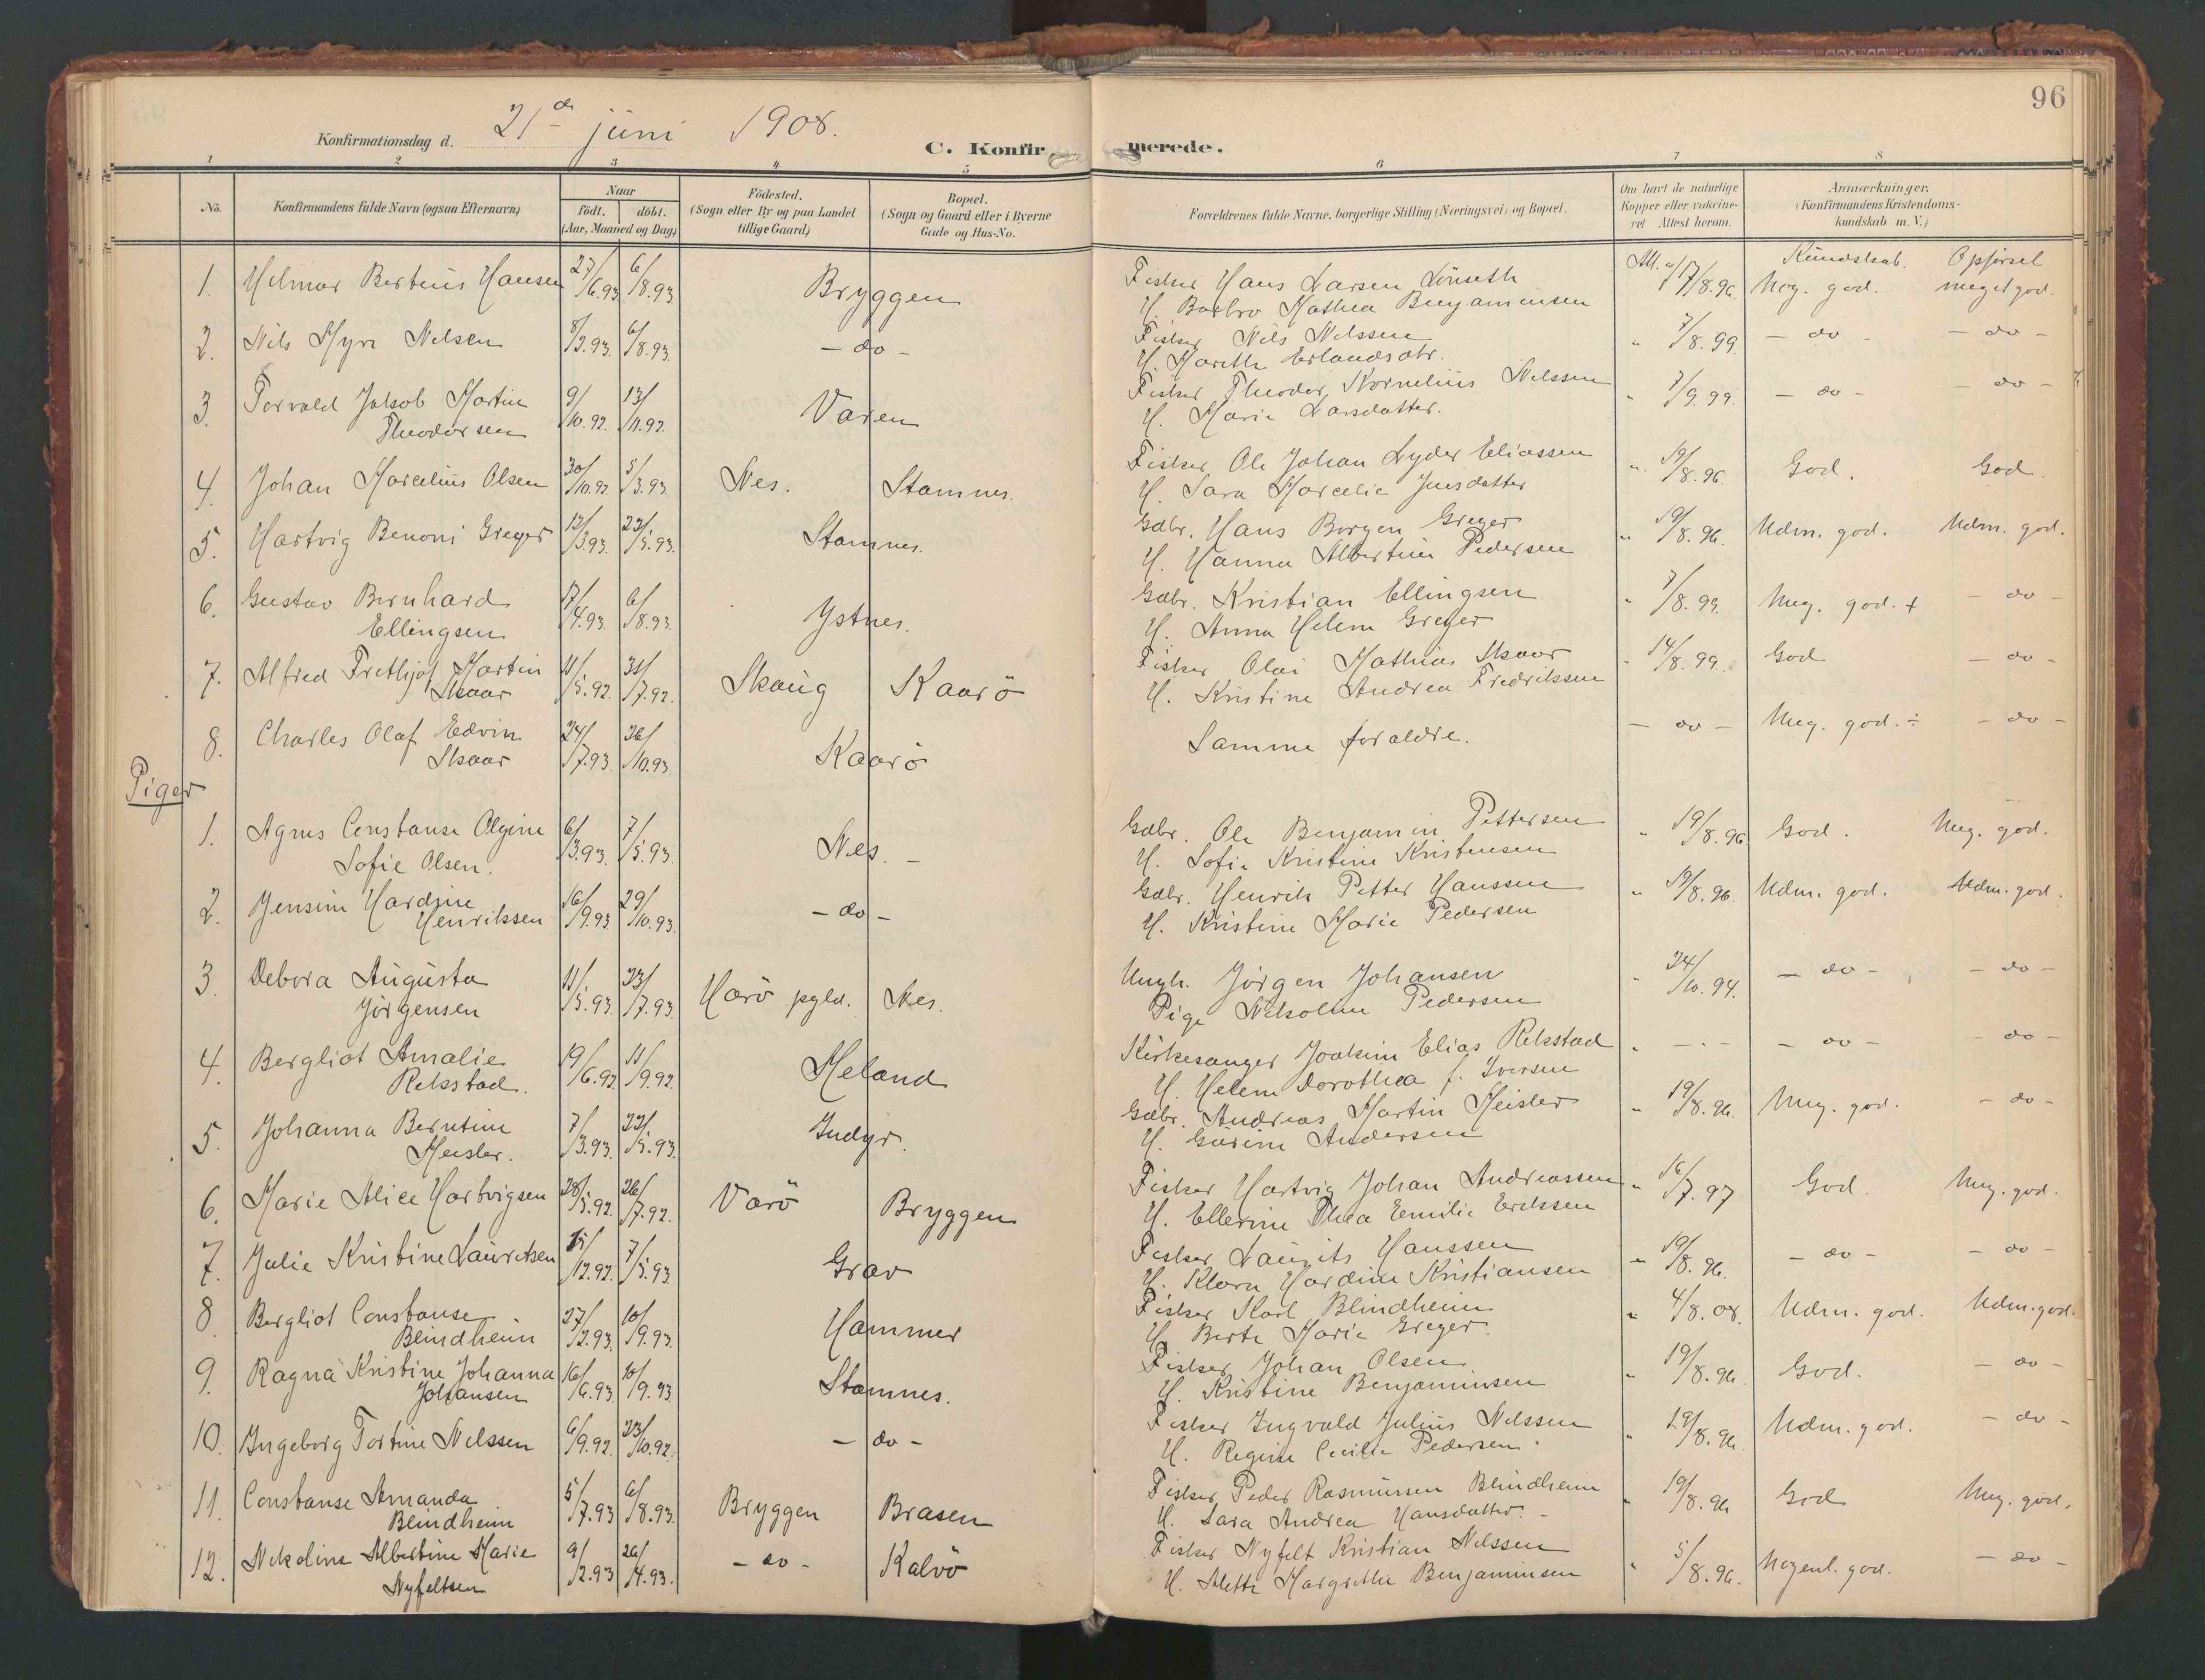 96
Konfirmationsdag d. 21de juni 1908.
C. Konfirmerede.
1 2 3 4 5 6 7 8
No. Konfirmandens fulde Navn (ogsaa Efternavn) Naar Födested. Bopæl. Forældrenes fulde Navne, borgerlige Stilling (Næringsvei) og Bopæl. Om havt de naturlige Anmærkninger.
födt. döbt. (Sogn eller By og paa Landet (Sogn og Gaard eller i Byerne Kopper eller vakcine- (Konfirmandens Kristendoms-
(Aar, Maaned og Dag) tillige Gaard) Gade og Hus-No. ret Attest herom. kundskab m. V.)
Kundskab. Opförsel
1. Hilmar Berteus Hansen 27/6.93 6/8.93 Bryggen Fisker Hans Larsen Lönseth Att. af 17/8.96. Meg. god. meget god.
H. Barbro Mathea Benjaminsen
2. Nils Myre Nilsen 8/2.93. 6/8.93. - do - Fisker Nils Nilssen " 7/8.99. - do - - do -
H. Marethe Erlandsdtr.
3. Torvald Jakob Martin 9/10.92. 13/11.92. Varen Fisker Theodor Kornelius Nilssen " 7/9.99. - do - - do -
Theodorsen H. Marie Larsdatter.
4. Johan Marcelius Olsen 30/10.92. 5/3.93. Nes. Stamnes. Fisker Ole Johan Lyder Eliassen " 19/8.96. God. God
H. Sara Marcelie Jensdatter
5. Hartvig Benoni Greger 12/3.93. 22/5.93. Stamnes. Gdbr. Hans Borgen Greger " 19/8.96. Udm. god. Udm. god.
H. Hanna Albertine Pedersen
6. Gustav Bernhard 17/4.93. 6/8.93. Ystnes. Gdbr. Kristian Ellingsen " 7/8.99. Meg. god. + - do -
Ellingsen H. Anna Helene Greger
7. Alfred Frethjof Martin 11/5.92. 31/7.92. Skaug Kaarö Fisker Olai Mathias Skaar " 14/8.99. God - do -
Skaar H. Kristine Andrea Fredrikssen
8. Charles Olaf Edvin 24/7.93. 26/10.93 Kaarö Samme foraldre. - do - Meg. god. ÷ - do -
Skaar
Piger
1. Agnes Constanse Olgine 6/3.93. 7/5.93. Nes. - Gdbr. Ole Benjamin Pettersen " 19/8.96 God. Meg. god.
Sofie Olsen. H. Sofie Kristine Kristensen
2. Jensine Hardine 16/9.93. 29/10.93. - do - Gdbr. Henrik Petter Hanssen " 19/8.96. Udm. god. Udm. god.
Henrikssen H. Kristine Marie Pedersen
3. Debora Augusta 11/5.93. 23/7.93. Harö pgld. Nes. Ungk. Jörgen Johansen " 24/10.94. - do - - do -
Jörgensen Pige Nikoline Pedersen
4. Bergliot Amalie 19/6.92. 11/9.92. Meland Kirkesanger Joakim Elias Rekstad " - . - - do - - do -
Rekstad. H. Helene Dorothea f. Iversen
5. Johanna Berntine 7/3.93. 22/5.93. Indyr. Gdbr. Andreas Martin Meisler " 19/8.96. Meg. god. - do -
Meisler. H. Gurine Andersen
6. Marie Alice Hartvigsen 28/5.92. 26/7.92. Varö Bryggen Fisker Hartvig Johan Andreassen " 16/7.97 God. Meg. god.
H. Ellerine Thea Emilie Erikssen
7. Julie Kristine Lauritsen 15/12.92. 7/5.93. Grav Fisker Laurits Hanssen " 19/8.96. - do - - do -
H. Klara Hardine Kristiansen
8. Bergliot Constanse 27/2.93. 10/9.93. Hammer Fisker Karl Blindheim " 4/8.08. Udm. god. Udm. god.
Blindheim H. Berte Marie Greger.
9. Ragna Kristine Johanna 16/6.93. 10/9.93 Stamnes. Fisker Johan Olsen. " 19/8.96. God. - do -
Johansen H. Kristine Benjaminsen
10. Ingeborg Tortine Nilssen 6/9.92. 23/10.92. - do - Fisker Ingvald Julius Nilssen " 19/8.96. Udm. god. - do -
H. Regine Cecilie Pedersen.
11. Constanse Amanda 5/7.93 6/8.93. Bryggen Brasen Fisker Peder Rasmussen Blindheim " 19/8.96 God Meg. god.
Blindheim H. Sara Andrea Hansdatter. -
12. Nikoline Albertine Marie 9/2.93 26/4.93. - do - Kalvö Fisker Nyfelt Kristian Nilssen " 5/8.96. Megenl. god. - do -
Nyfeltsen H. Mette Margrethe Benjaminsen